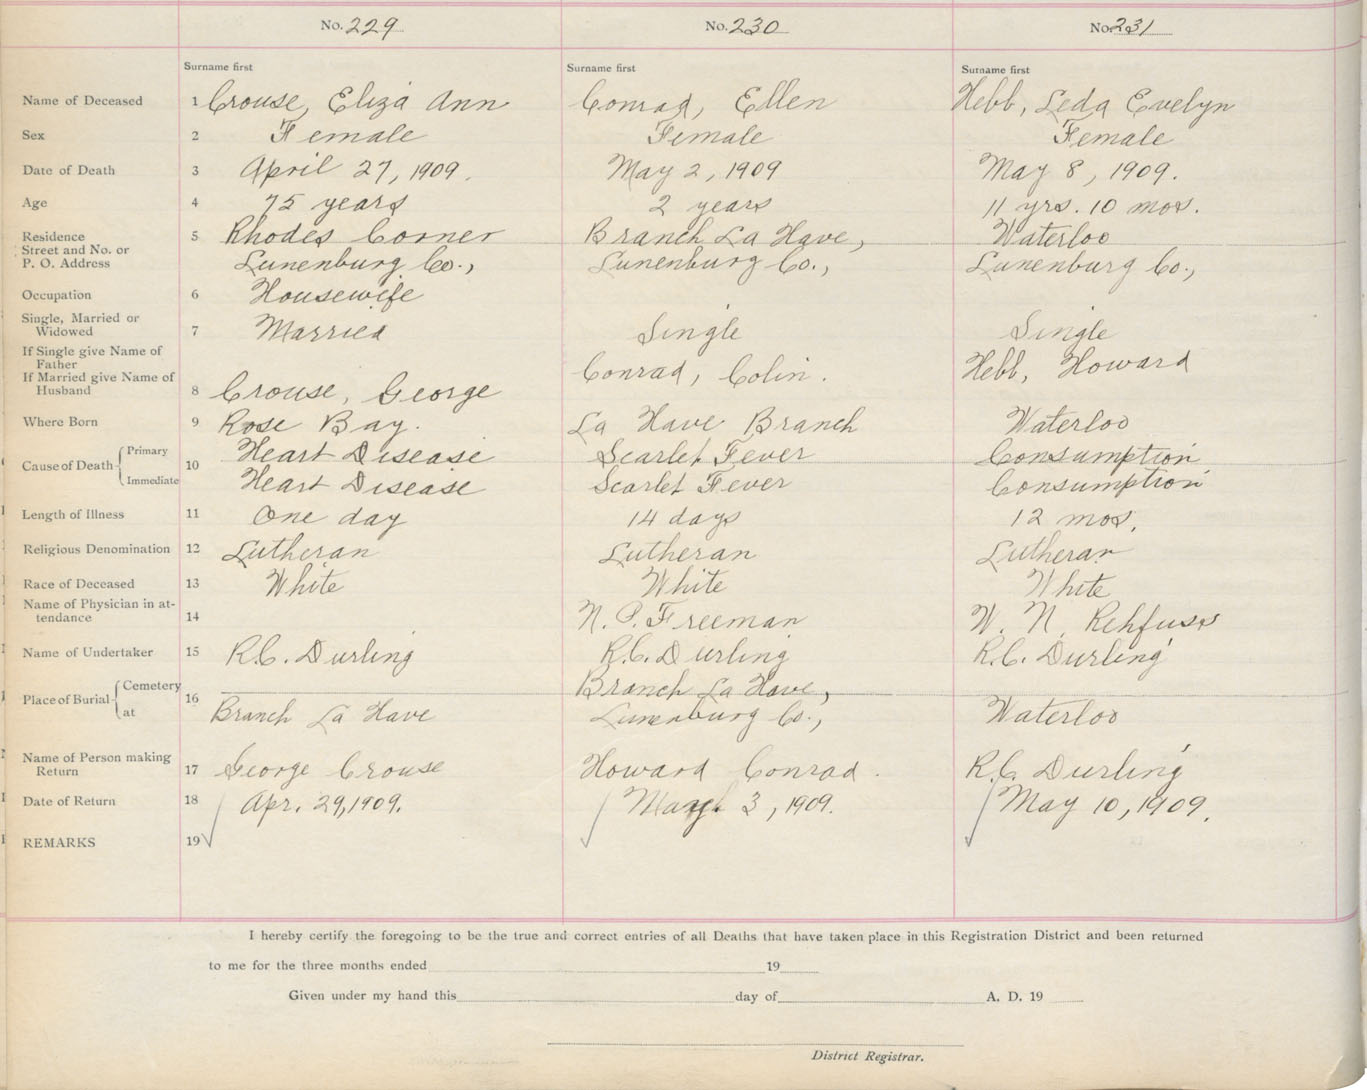 No. 229 No. 230 No. 231
Surname first Surname first Surname first
Name of Deceased 1 Crouse, Eliza Ann Conrad, Ellen Hebb, Leda Evelyn
Sex 2 Female Female Female
Date of Death 3 April 27, 1909. May 2, 1909 May 8, 1909.
Age 4 75 years 2 years 11 yrs. 10 mos.
Residence 5 Rhodes Corner Branch La Have, Waterloo
Street and No. or
P. O. Address Lunenburg Co., Lunenburg Co., Lunenburg Co.,
Occupation 6 Housewife
Single, Married or
Widowed 7 Married Single Single
If Single give Name of
Father Conrad, Colin. Hebb, Howard
If Married give Name of
Husband 8 Crouse, George
Where Born 9 Rose Bay. La Have Branch Waterloo
Primary Heart Disease Scarlet Fever Consumption
Cause of Death 10
Immediate Heart Disease Scarlet Fever Consumption
Length of Illness 11 One day 14 days 12 mos.
Religious Denomination 12 Lutheran Lutheran Lutheran
Race of Deceased 13 White White White
Name of Physician in at-
tendance 14 N. P. Freeman W. N. Rehfuss
Name of Undertaker 15 R.C. Durling R.C. Durling R.C. Durling
Cemetery Branch La Have,
Place of Burial 16
at Branch La Have Lunenburg Co., Waterloo
Name of Person making
Return 17 George Crouse Howard Conrad. R.C. Durling
Date of Return 18 Apr. 29, 1909. May 3, 1909. May 10, 1909.
REMARKS 19
I hereby certify the foregoing to be the true and correct entries of all Deaths that have taken place in this Registration District and been returned
to me for the three months ended 19
Given under my hand this day of A. D. 19
District Registrar.